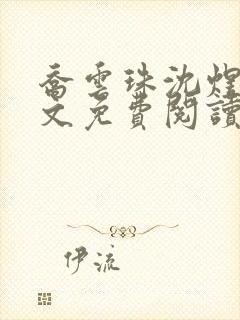 喬雲珠沈煌
文免費閱讀
伊流